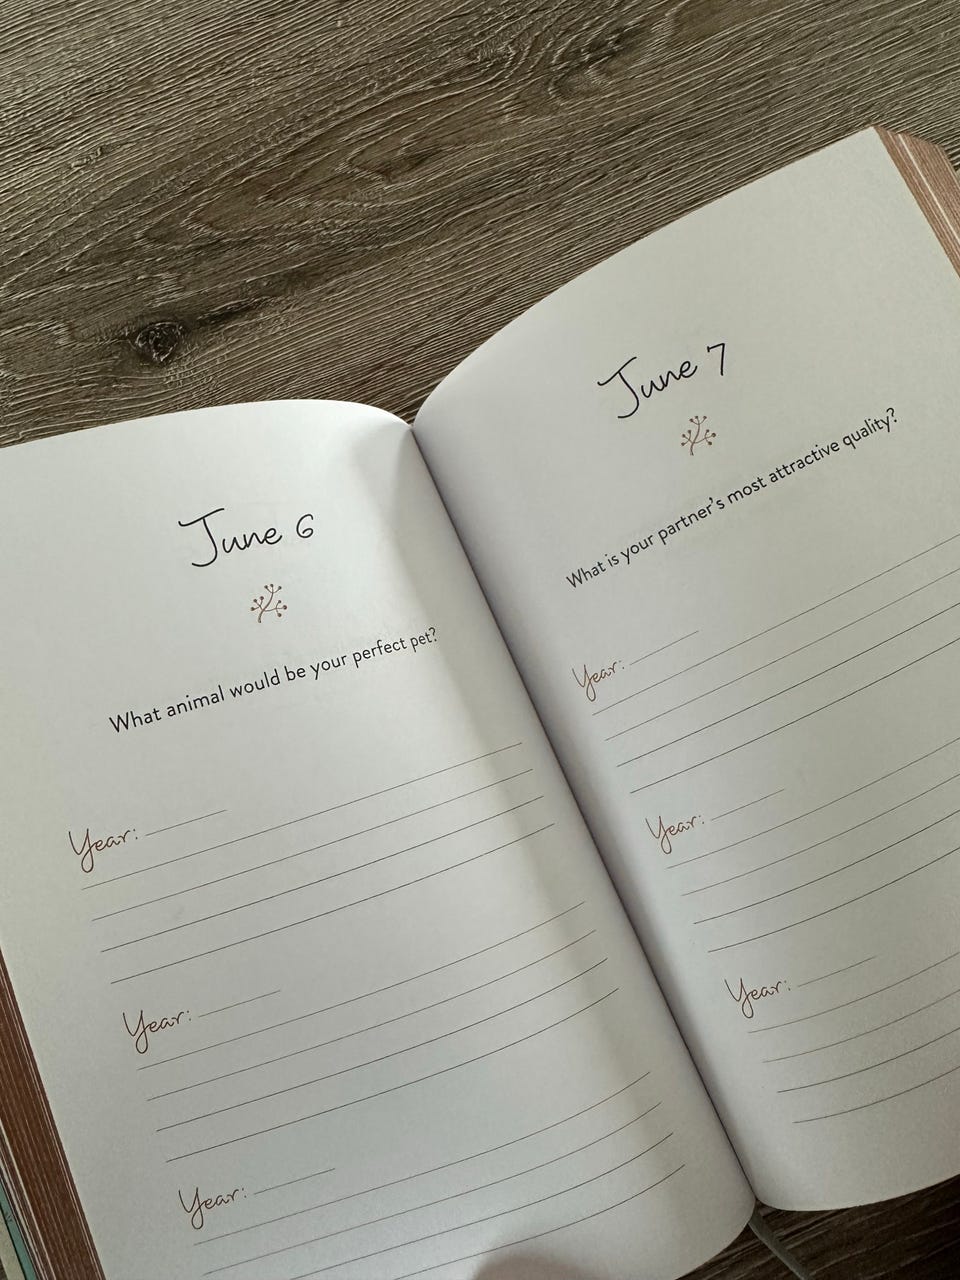 June 6
What animal would be your perfect pet?
Year:
Year:
Year:
June 7
What is your partner's most attractive quality?
Year:
Year:
Year: